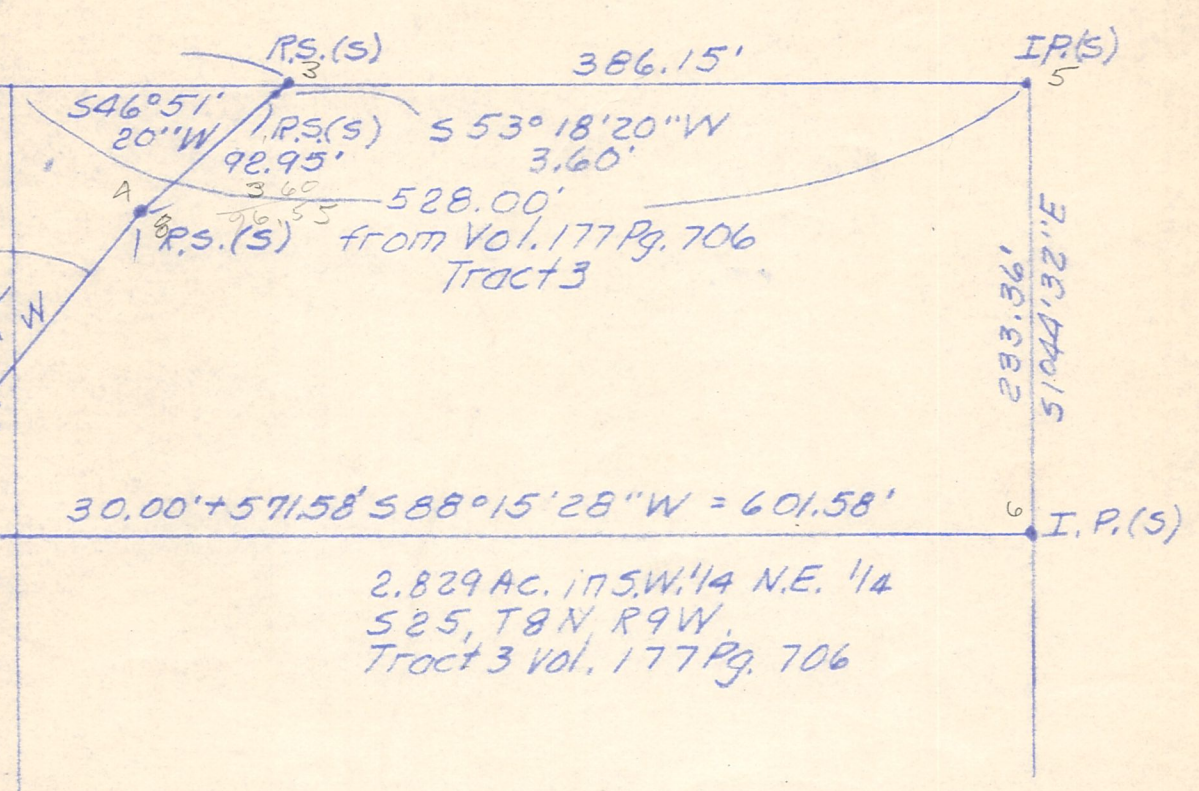 R.S.(S)
3
386.15'
I.P.(S)
5
S46°51'
20"W
R.S.(S)
92.95'
S 53° 18' 20" W
3.60'
3 60
96.55
4
8
R.S.(S)
528.00'
from Vol. 177 Pg. 706
Tract 3
W
233.36'
S1044'32"E
30.00'+571.58' S88°15'28"W = 601.58'
6
I.P.(S)
2.829 Ac. in S.W.1/4 N.E. 1/4
S25, T8N, R9W.
Tract 3 Vol. 177 Pg. 706